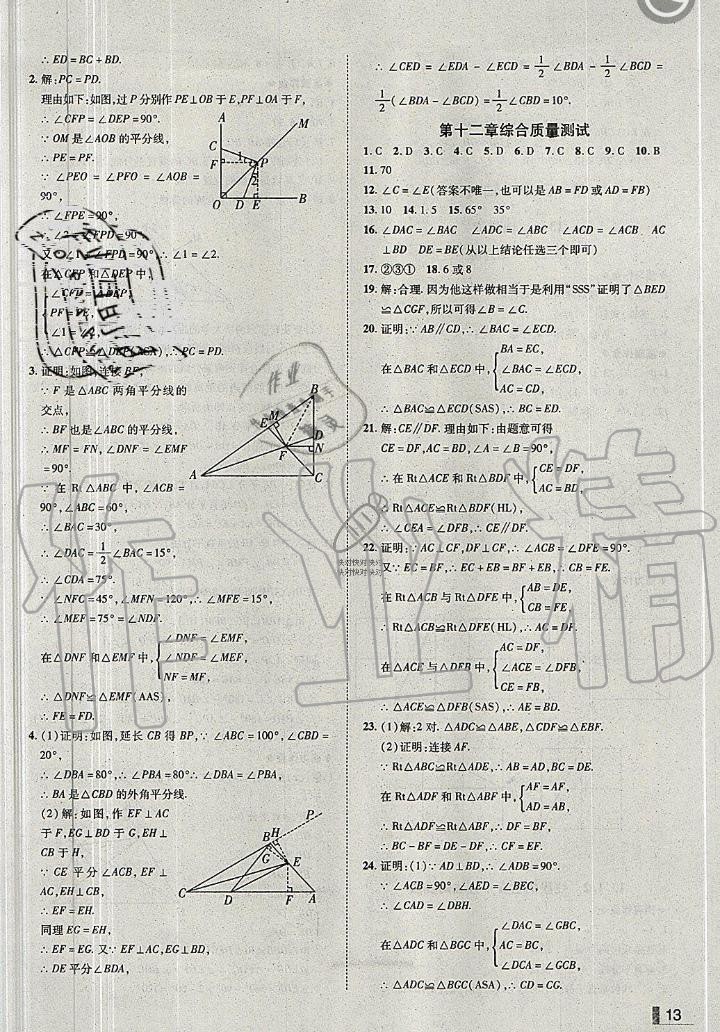 ∴ ED=BC+BD.
2. 解:PC=PD.
理由如下:如图,过P分别作PE⊥OB于E,PF⊥OA于F,
∴ ∠CFP=∠DEP=90°.
∵ OM是∠AOB的平分线,
∴ PE=PF.
∵ ∠PEO=∠PFO=∠AOB=
90°,
∴ ∠FPE=90°,
∴ ∠2+∠FPD=90°
∴ ∠1=∠2.
在△CFP和△DEP中,
∠CFP=∠DEP,
PF=PE,
∠1=∠2,
∴ △CFP≌△DEP(ASA),∴ PC=PD.
3. 证明:如图,连接BF,
∵ F是△ABC两角平分线的
交点,
∴ BF也是∠ABC的平分线,
∴ MF=FN,∠DNF=∠EMF
=90°.
∵ 在Rt△ABC中,∠ACB=
90°,∠ABC=60°,
∴ ∠BAC=30°,
∴ ∠DAC=1/2∠BAC=15°,
∴ ∠CDA=75°.
∵ ∠NFC=45°,∠MFN=120°,∴ ∠MFE=15°,
∴ ∠MEF=75°=∠NDF.
在△DNF和△EMF中,{∠DNF=∠EMF,
∠NDF=∠MEF,
NF=MF,
∴ △DNF≌△EMF(AAS),
∴ FE=FD.
4. (1)证明:如图,延长CB得BP,∵ ∠ABC=100°,∠CBD=
20°,
∴ ∠DBA=80°,∴ ∠PBA=80°,∴ ∠DBA=∠PBA,
∴ BA是△CBD的外角平分线.
(2)解:如图,作EF⊥AC
于F,EG⊥BD于G,EH⊥
CB于H,
∵ CE平分∠ACB,EF⊥
AC,EH⊥CB,
∴ EF=EH.
同理EG=EH,
∴ EF=EG.又∵ EF⊥AC,EG⊥BD,
∴ DE平分∠BDA,
A
M
C
F
1
P
2
O
D
E
B
B
M
E
D
N
F
A
C
P
B
H
G
E
C
D
F
A
∴ ∠CED=∠EDA-∠ECD=1/2∠BDA-1/2∠BCD=
1/2(∠BDA-∠BCD)=1/2∠CBD=10°.
第十二章综合质量测试
1. C 2. D 3. C 4. C 5. D 6. D 7. C 8. C 9. C 10. B
11. 70
12. ∠C=∠E(答案不唯一,也可以是AB=FD或AD=FB)
13. 10 14. 1.5 15. 65° 35°
16. ∠DAC=∠BAC ∠ADC=∠ABC ∠ACD=∠ACB AC
⊥BD BE=DE(从以上结论任选三个即可)
17. ②③① 18. 6或8
19. 解:合理. 因为他这样做相当于是利用“SSS”证明了△BED
≌△CGF,所以可得∠B=∠C.
20. 证明:∵ AB∥CD,∴ ∠BAC=∠ECD,
在△BAC和△ECD中,{BA=EC,
∠BAC=∠ECD,
AC=CD.
∴ △BAC≌△ECD(SAS),∴ CB=ED.
21. 解:CE∥DF. 理由如下:由题意可得
CE=DF,AC=BD,∠A=∠B=90°,
∴ 在Rt△ACE和Rt△BDF中,{CE=DF,
AC=BD,
∴ Rt△ACE≌Rt△BDF(HL),
∴ ∠CEA=∠DFB,∴ CE∥DF.
22. 证明:∵AC⊥CF,DF⊥CF,∴ ∠ACB=∠DFE=90°.
又∵ EC=BF,∴ EC+EB=BF+EB,∴ CB=FE.
在Rt△ACB与Rt△DFE中,{AB=DE,
CB=FE,
∴ Rt△ACB≌Rt△DFE(HL),∴ AC=DF.
在△ACE与△DFB中,{AC=DF,
∠ACE=∠DFB,
CE=FB,
∴ △ACE≌△DFB(SAS),∴ AE=DB.
23. (1)解:2对. △ADC≌△ABE,△CDF≌△EBF.
(2)证明:连接AF.
∵ Rt△ABC≌Rt△ADE,
∴ AB=AD,BC=DE,∠ABC=∠ADE=90°.
在Rt△ADF和Rt△ABF中,{AF=AF,
AD=AB,
∴ Rt△ADF≌Rt△ABF,∴ DF=BF,
∴ BC-BF=DE-DF,即CF=EF.
24. 证明:(1)∵ AD⊥BD,∴ ∠ADB=90°.
∵ ∠ACB=90°,∠AGC=∠BGD,
∴ ∠CAD=∠DBH.
在△ADC和△BGC中,{∠DAC=∠GBC,
AC=BC,
∠ACD=∠BCG,
∴ △ADC≌△BGC(ASA),∴ AD=BG.
作业精
作业
快对快对快对
快对快对快对
13